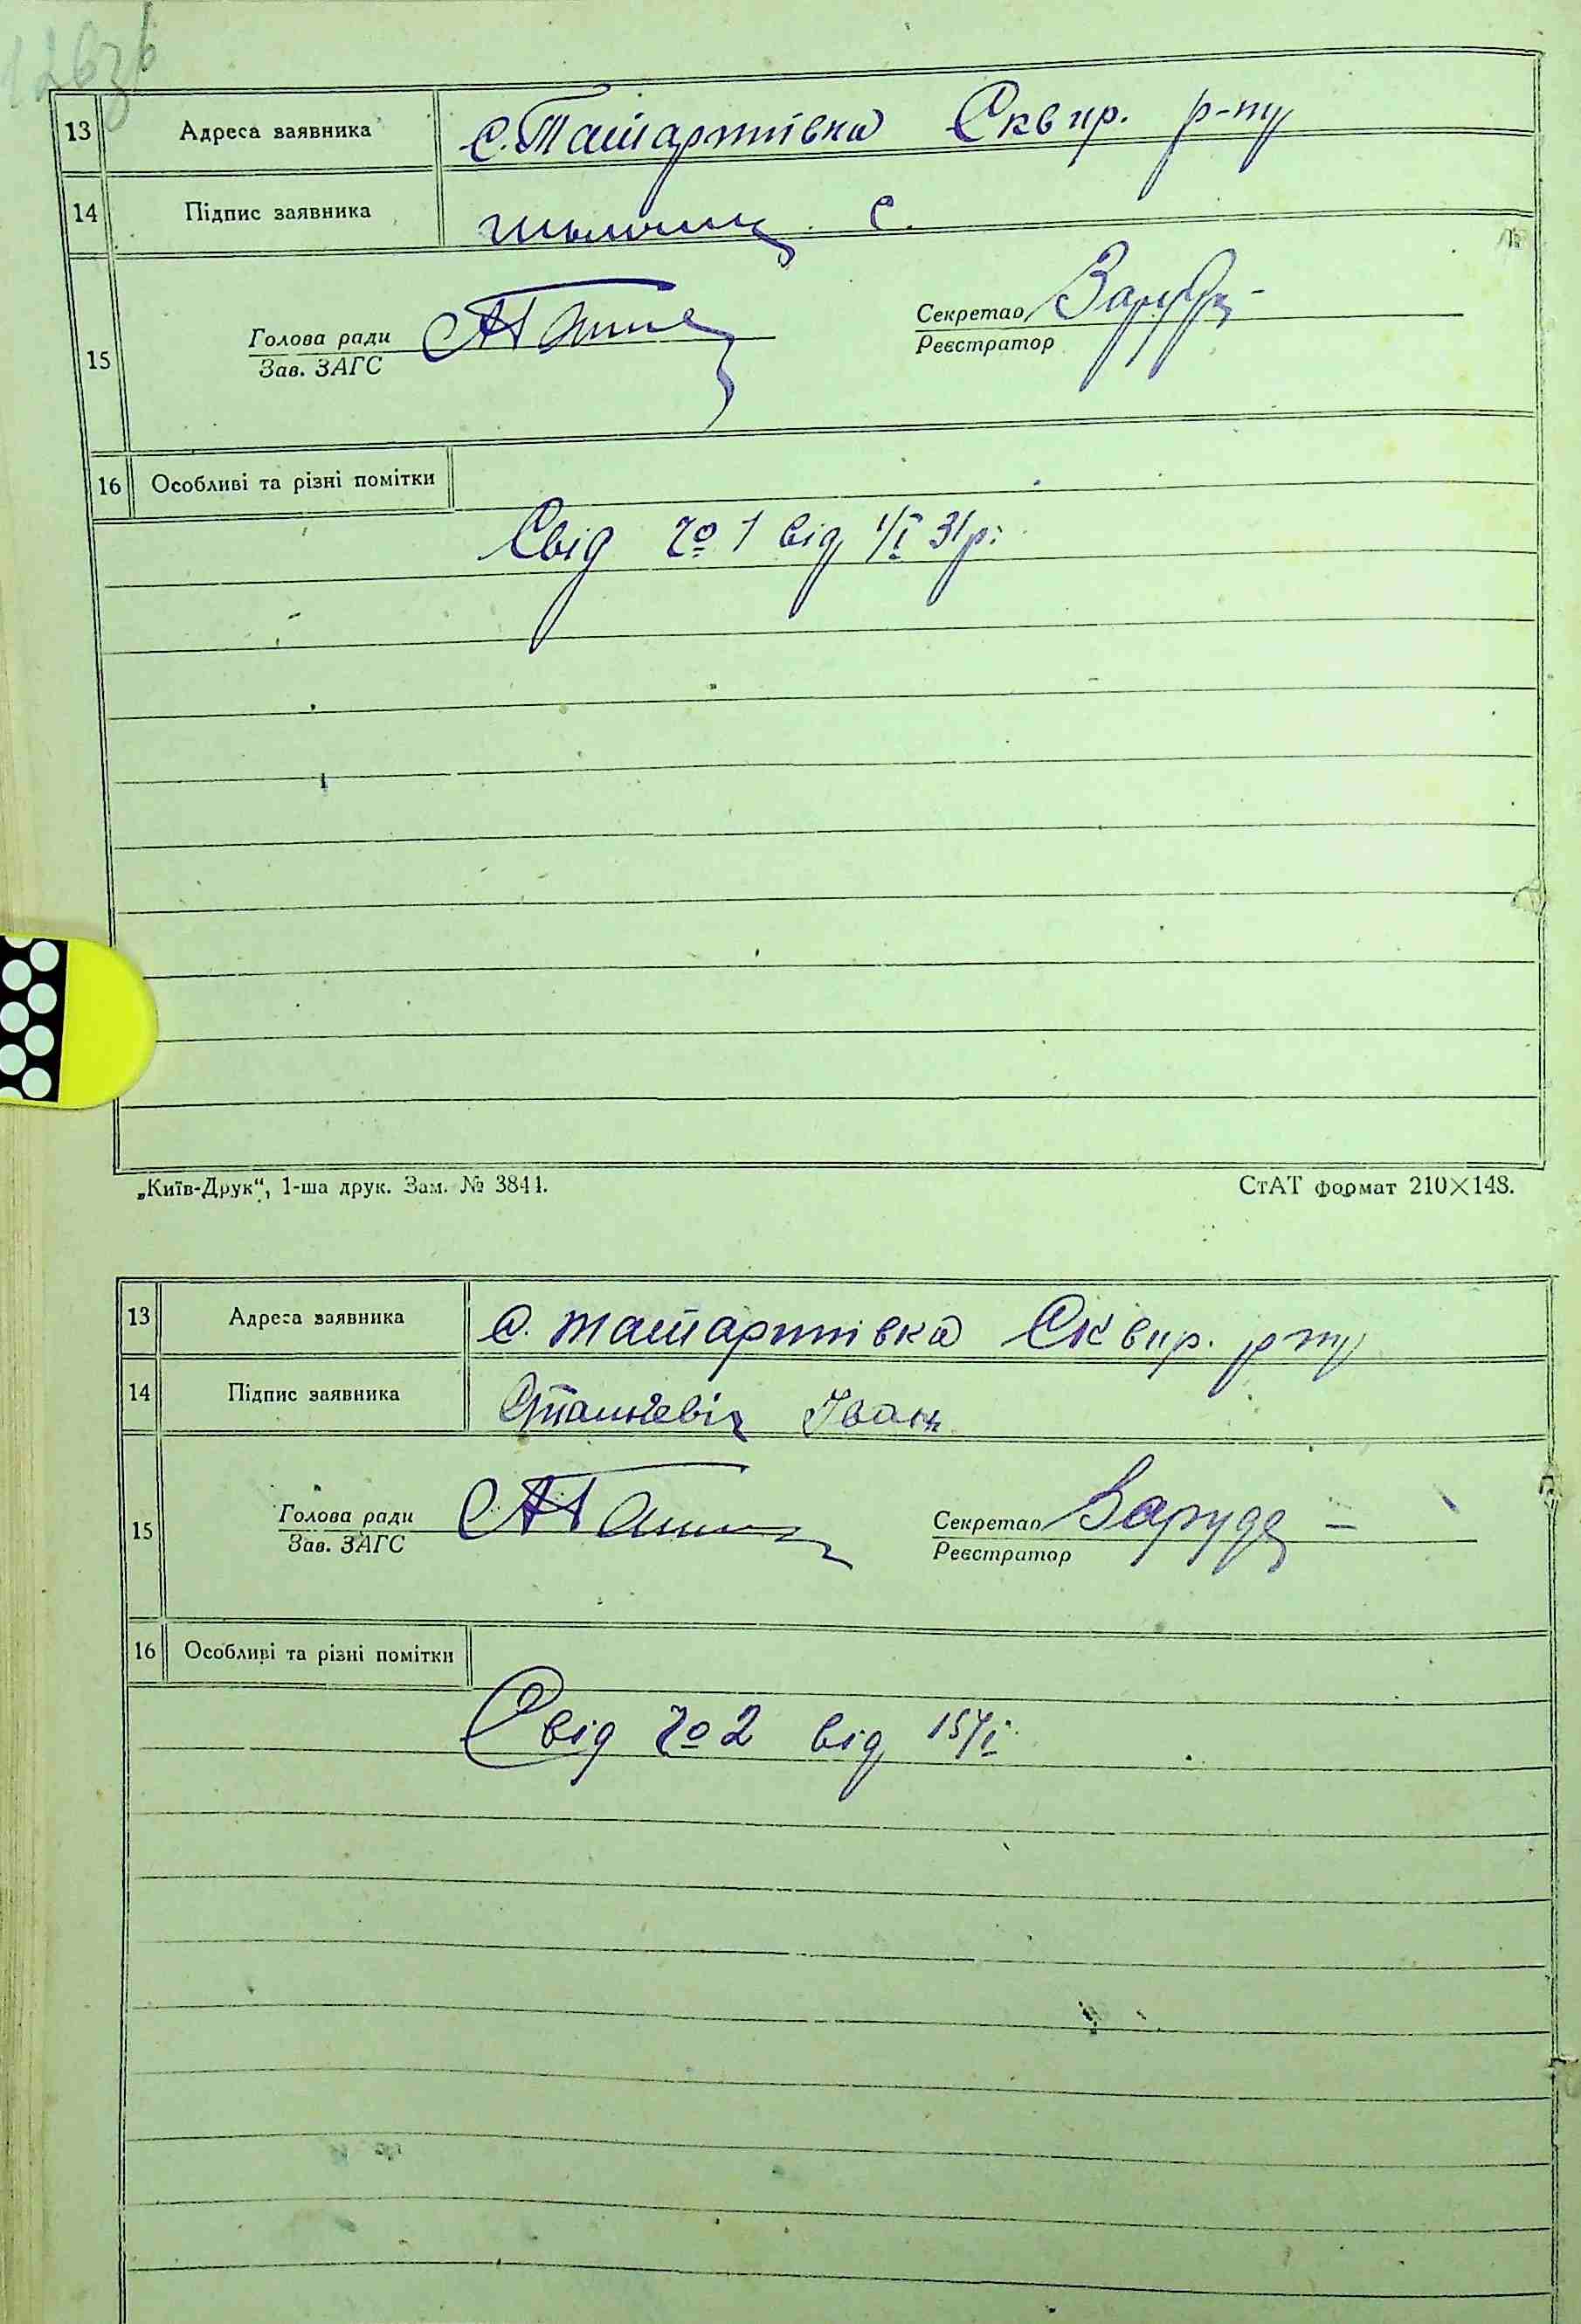 126зв
13 Адреса заявника с. Татартівка Сквир. р-ну
14 Підпис заявника С.
15 Голова ради Секретар Заруд
Зав. ЗАГС Реєстратор
16 Особливі та різні помітки
Свід № 1 від 1/I 31р.
„Київ-Друк“, 1-ша друк. Зам. № 3841. СтАТ формат 210×148.
13 Адреса заявника с. Татартівка Сквир. р-ну
14 Підпис заявника Станкевіч Іван
15 Голова ради Секретар Заруда
Зав. ЗАГС Реєстратор
16 Особливі та різні помітки
Свід № 2 від 15/I